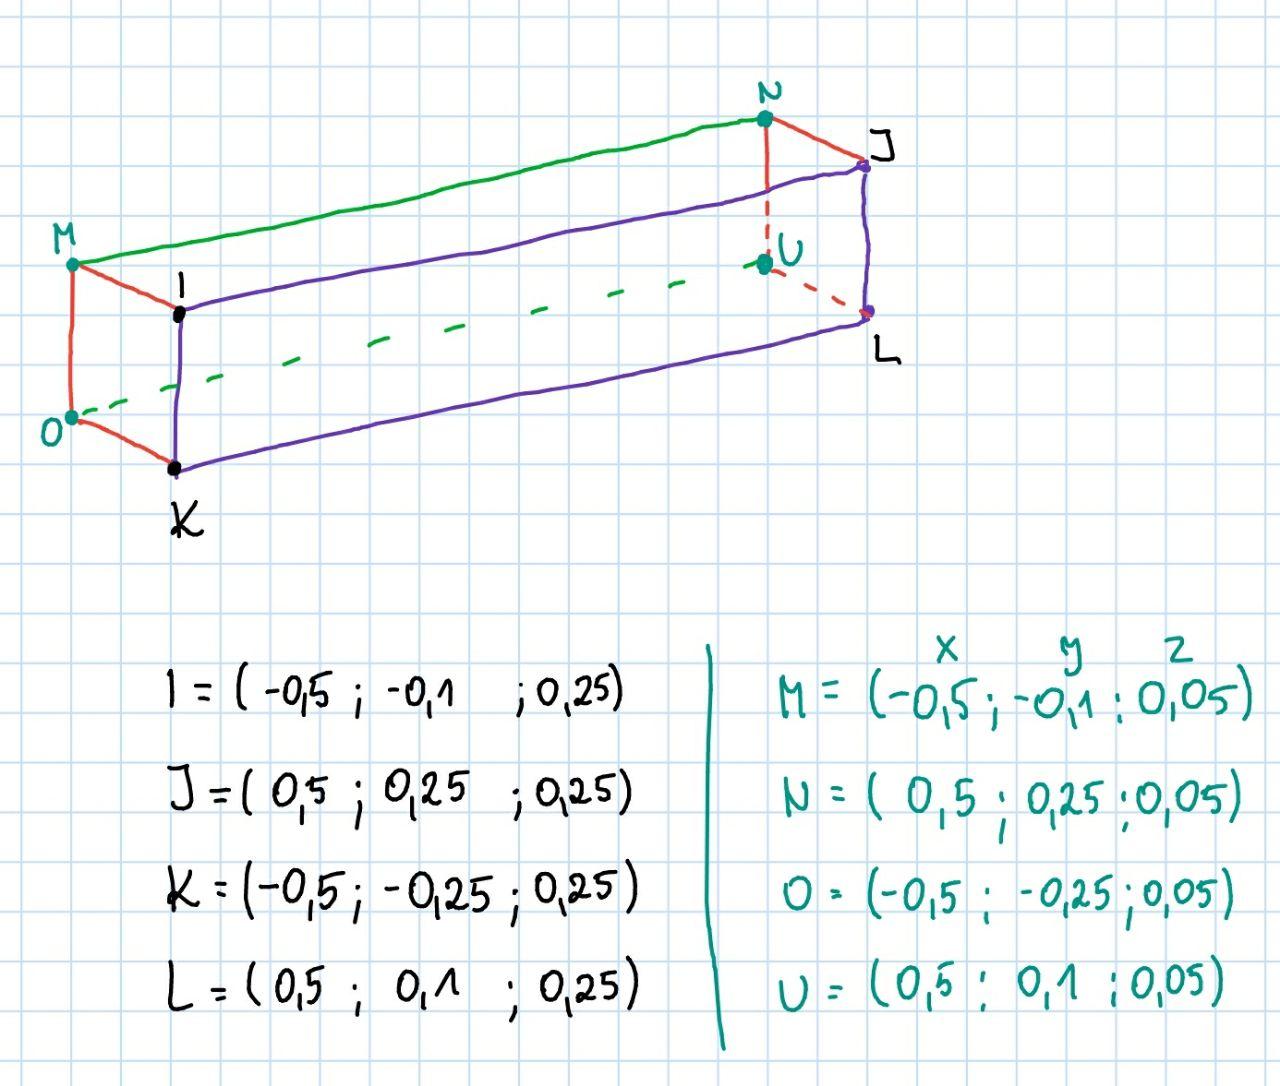 N
J
M
I
U
O
L
K
x y z
I = (-0,5 ; -0,1 ; 0,25)
J = ( 0,5 ; 0,25 ; 0,25)
K = (-0,5 ; -0,25 ; 0,25)
L = ( 0,5 ; 0,1 ; 0,25)
M = (-0,5 ; -0,1 ; 0,05)
N = ( 0,5 ; 0,25 ; 0,05)
O = (-0,5 ; -0,25 ; 0,05)
U = ( 0,5 ; 0,1 ; 0,05)